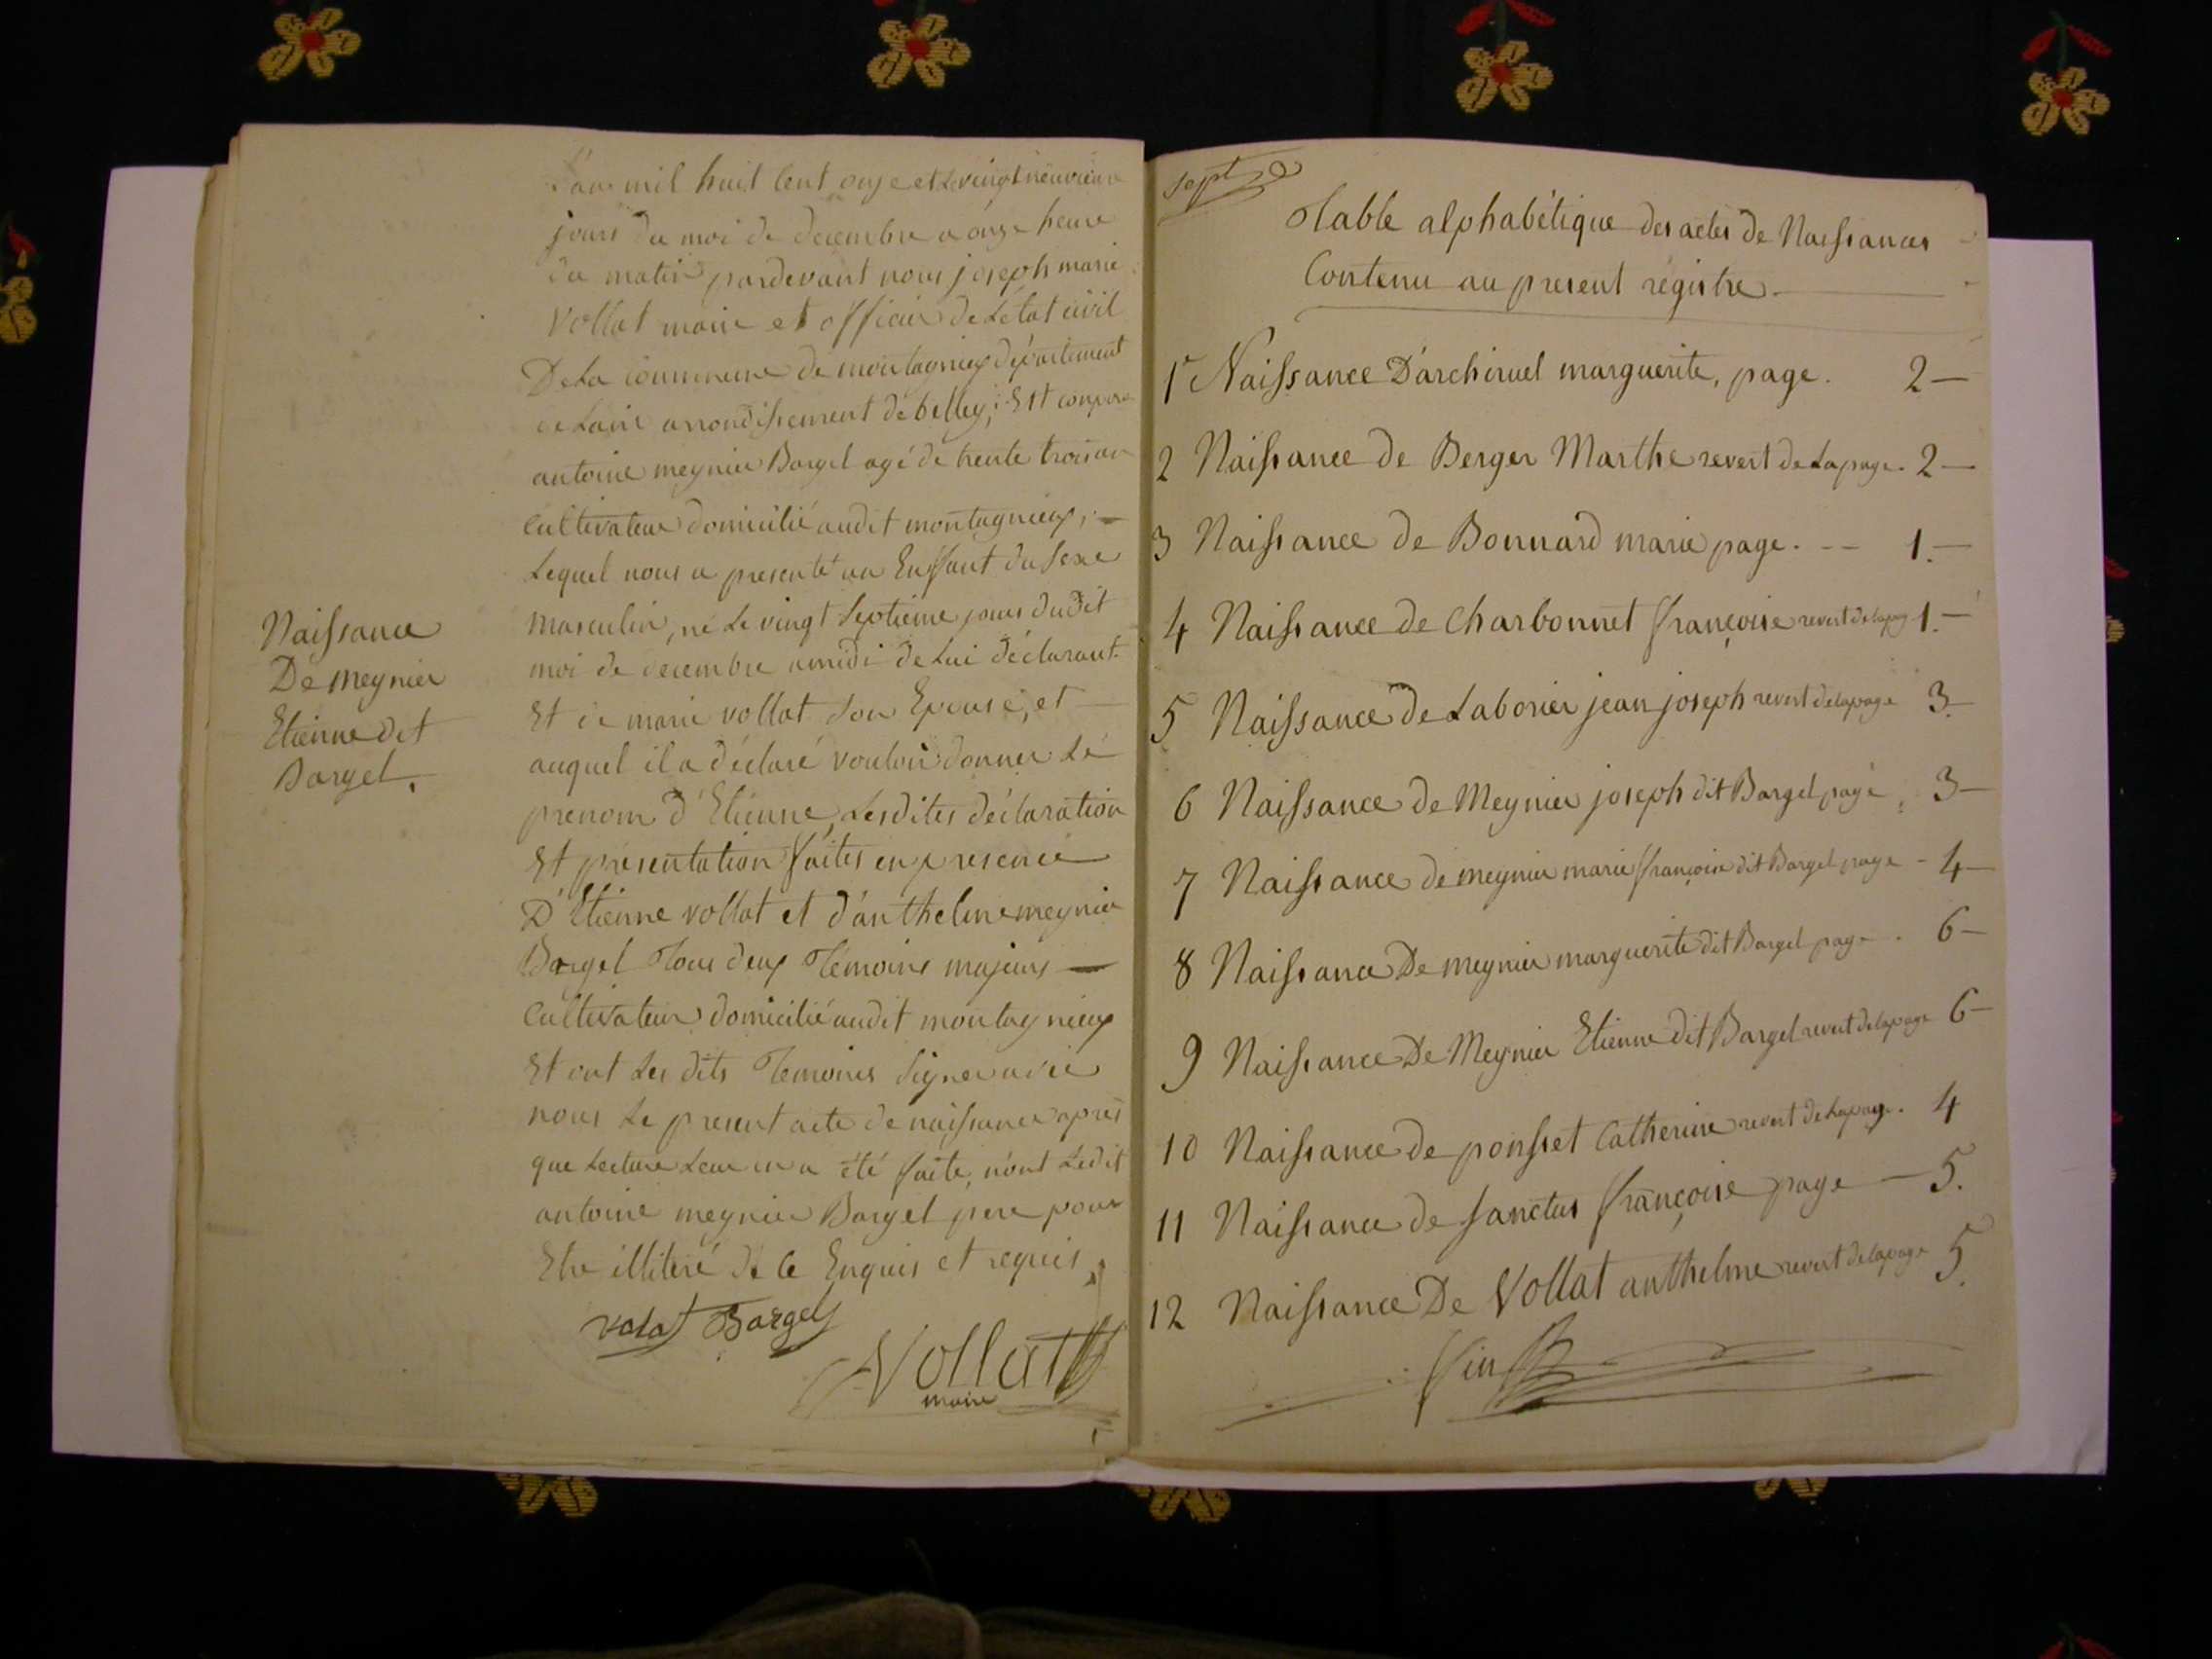 L'an mil huit Cent onze et Le vingt neuvieme
jours du moi de decembre a onze heure
du matin pardevant nous joseph marie
Vollat maire et officier de L'état civil
De La commune de montagnieux département
de Lain arrondissement de belley; Est comparu
antoine meynier Bargel agé de trente trois an
Cultivateur domicilié audit montagnieux, —
Lequel nous a presenté un Enffant du Sexe
masculin, né Le vingt Septieme jours dudit
moi de decembre a midi de Lui déclarant.
Et de marie vollat Son Epouse, et —
auquel il a déclaré vouloir donner Le
prenom d'Etienne, Lesdites déclaration
Et présentation faites en presence
D'Etienne vollat et d'anthelme meynier
Bargel Tous deux Témoins majeurs —
Cultivateur domicilié audit montagnieux
Et ont Les dits Temoins Signer avec
nous Le present acte de naissance après
que Lecture Leur en a été faite, n'ont Ledit
antoine meynier Bargel pere pour
Etre illiteré de Ce Enquis et requis
volat Bargel
Vollat
maire
Naissance
De meynier
Etienne dit
Bargel.
Sept
Table alphabétique des actes de Naissances
Contenu au present régistre —
1r Naissance D'archiruel marguerite, page. 2 —
2 Naissance de Berger Marthe revert de La page. 2 —
3 Naissance de Bonnard marie page. -- 1. —
4 Naissance de Charbonnet françoise revert de la pag 1. —
5 Naissance de Laborier jean joseph revert de la page 3. —
6 Naissance de Meynier joseph dit Bargel page 3 —
7 Naissance de meynier marie françoise dit Bargel page - 4 —
8 Naissance De meynier marguerite dit Bargel page . 6 —
9 Naissance De Meynier Etienne dit Bargel revert de la page 6 —
10 Naissance de ponsset Catherine revert de La page. 4
11 Naissance de Sanctus françoise page — 5.
12 Naissance De Vollat anthelme revert de la page 5.
fin